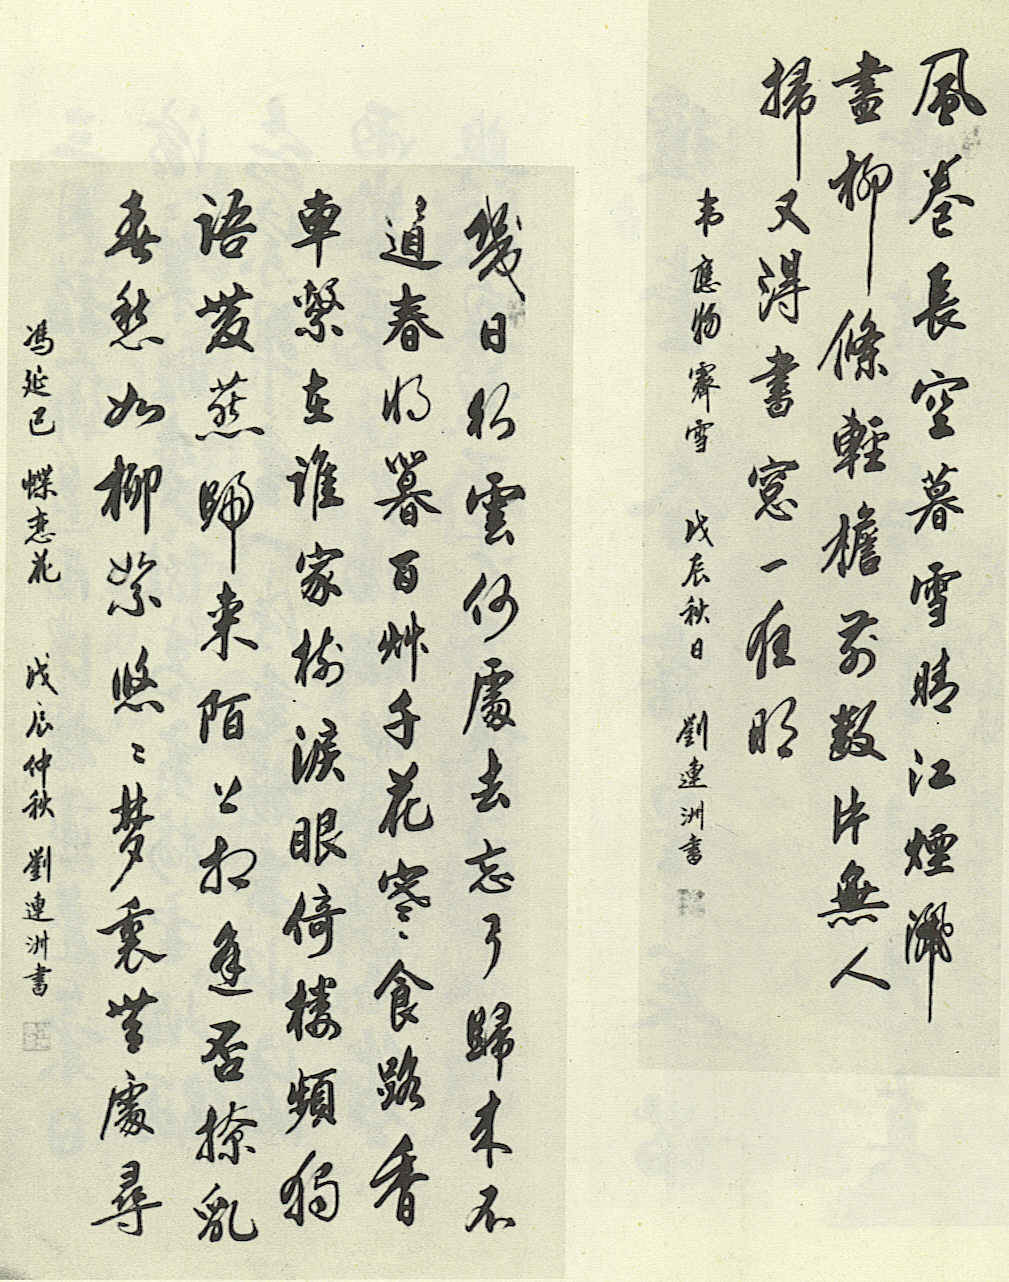 風卷長空暮雪晴江煙洗
盡柳條輕檐前數片無人
掃又得書窓一夜明
韦應物霽雪 戊辰秋日 劉連洲書
幾日行雲何處去忘了歸來不
道春將暮百艸千花寒食路香
車繫在誰家樹淚眼倚樓頻獨
語雙燕歸来陌上相逢否撩亂
春愁如柳絮悠〻夢裏無處尋
馮延巳 蝶恋花 戊辰仲秋 劉連洲書